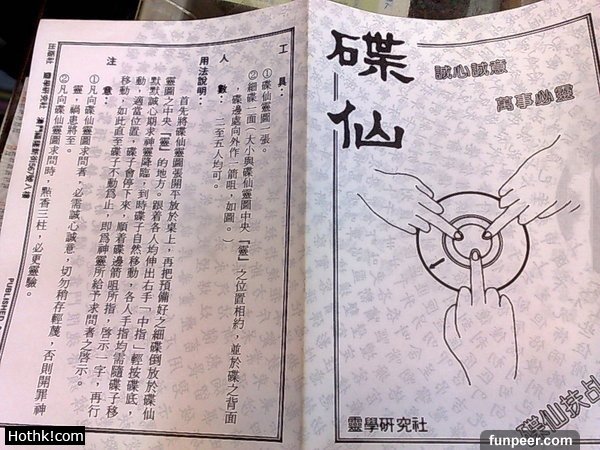 碟仙
誠心誠意
萬事必靈
靈學研究社
碟仙扶乩
工具：①碟仙靈圖一張。
②細碟一面（大小與碟仙靈圖中央『靈』之位置相約，並於碟之背面
，碟邊處向外作一箭咀，如圖。）
人數：二至五人均可。
用法說明：
首先將碟仙靈圖張開平放於桌上，再把預備好之細碟倒放於碟仙
靈圖之中央『靈』的地方。跟着各人均伸出右手「中指」輕按碟底，
默默誠心期求神靈降臨，到時碟子自然移動，各人手指均需隨碟子移
動，適當位置，碟子會停下來，順着碟邊箭咀所指，啓示一字，再行
移動，如此直至碟子不動爲止，即爲神靈所給予求問者之啓示。
注意：①凡向碟仙靈圖求問者，必需誠心誠意，切勿稍存輕蔑，否則開罪神
靈，禍患將至。
②凡向碟仙靈圖求問時，點香三柱，必更靈驗。
出版社 靈學研究社
PUBLISHED
Hothk!com
funpeer.com